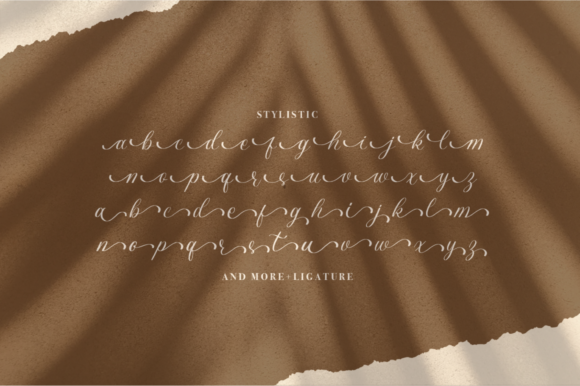 STYLISTIC
a b c d e f g h i j k l m
n o p q r s u v w x y z
a b c d e f g h i j k l m
n o p q r s t u v w x y z
AND MORE+LIGATURE